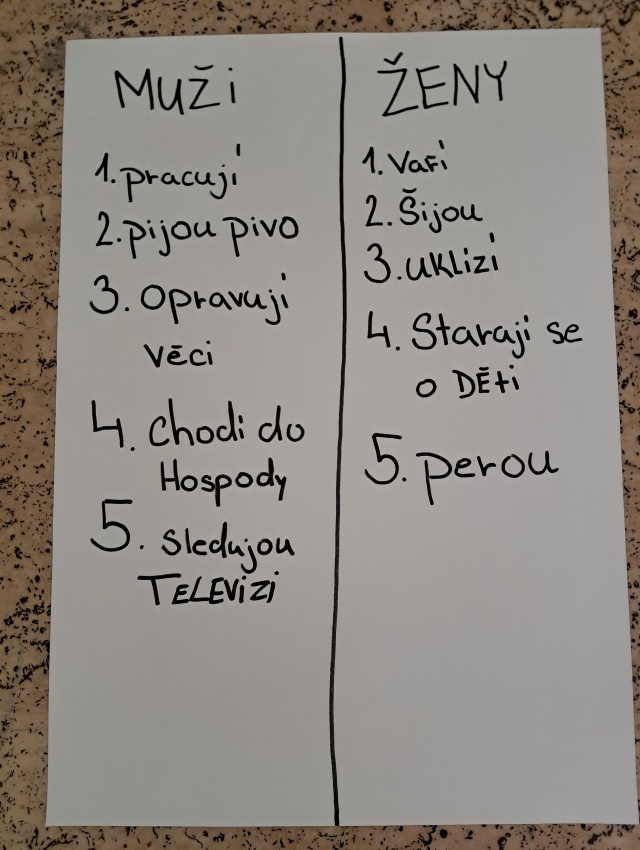 MUŽi
1. pracují
2. pijou pivo
3. Opravují
Věci
4. Chodi do
Hospody
5. Sledujou
TELEVIZI
ŽENY
1. Vaří
2. Šijou
3. uklízí
4. Starají se
o Děti
5. perou